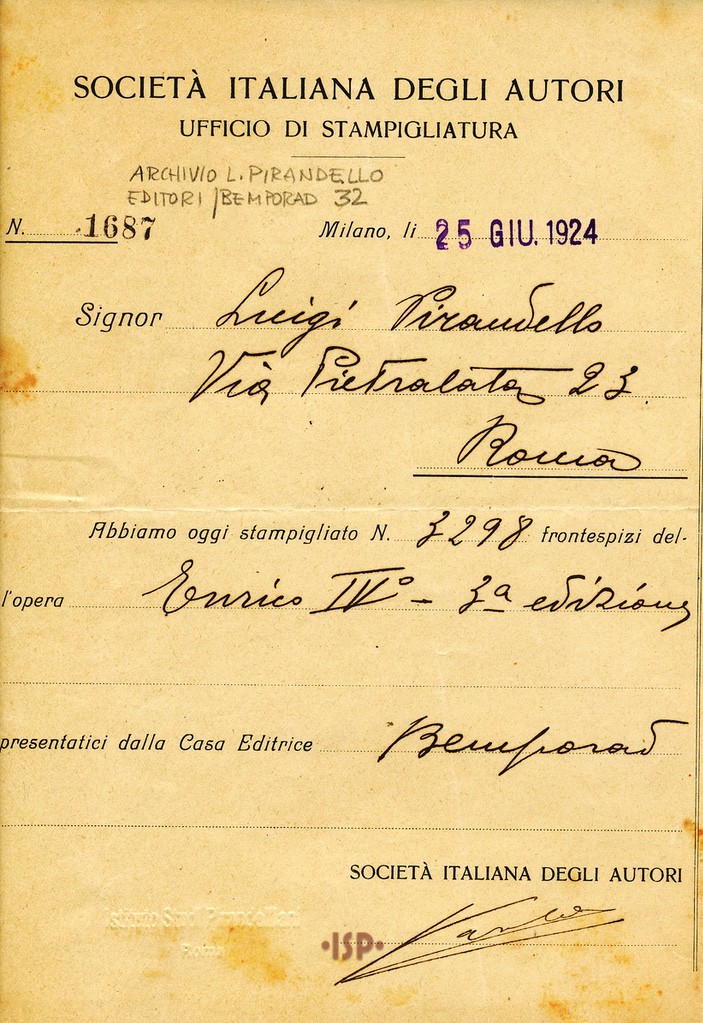 SOCIETÀ ITALIANA DEGLI AUTORI
UFFICIO DI STAMPIGLIATURA
ARCHIVIO L. PIRANDELLO
EDITORI / BEMPORAD 32
N. 1687 Milano, li 25 GIU. 1924
Signor Luigi Pirandello
Via Pietralata 23
Roma
Abbiamo oggi stampigliato N. 3298 frontespizi del-
l'opera Enrico IV° - 3ª edizione
presentatici dalla Casa Editrice Bemporad
SOCIETÀ ITALIANA DEGLI AUTORI
Roma
•ISP•